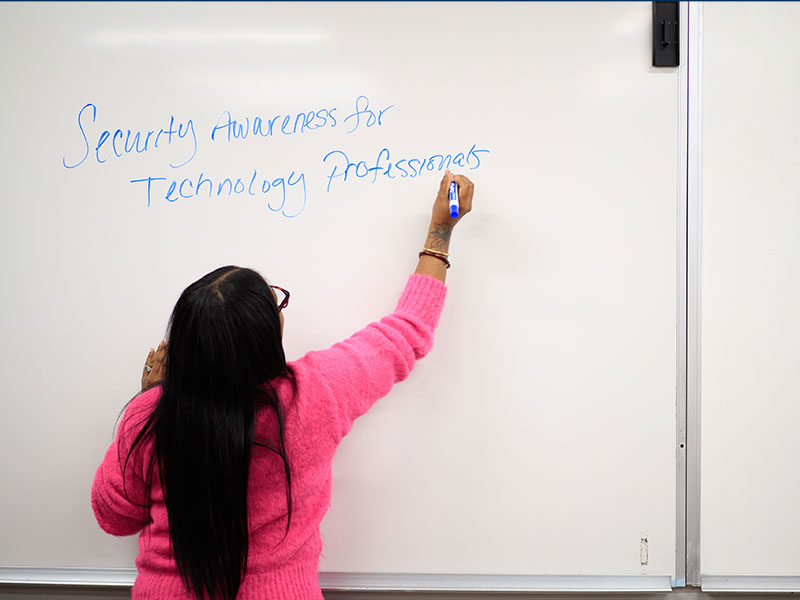 Security Awareness for
Technology Professionals